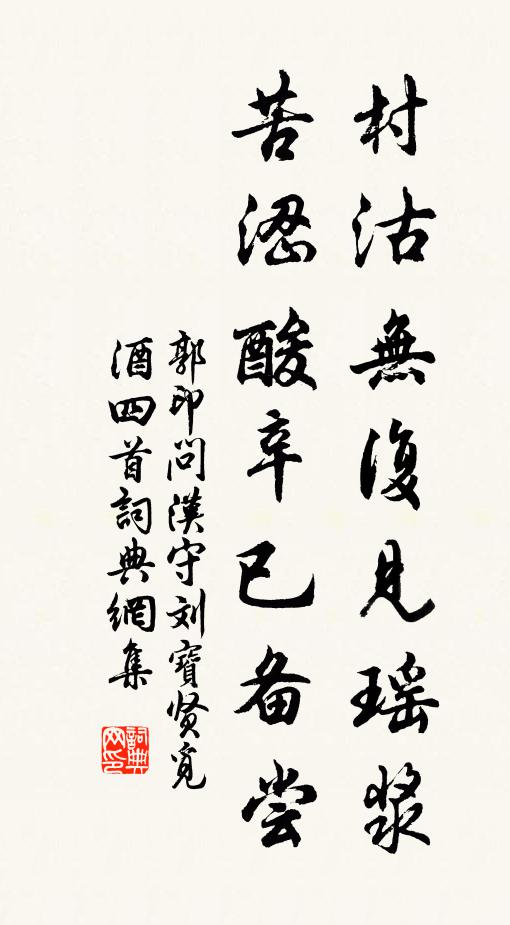 村沽無復見瑶漿
苦涩酸辛已备尝
郭印问漢守刘寶贤覓
酒四首詞典網集
詞典网印